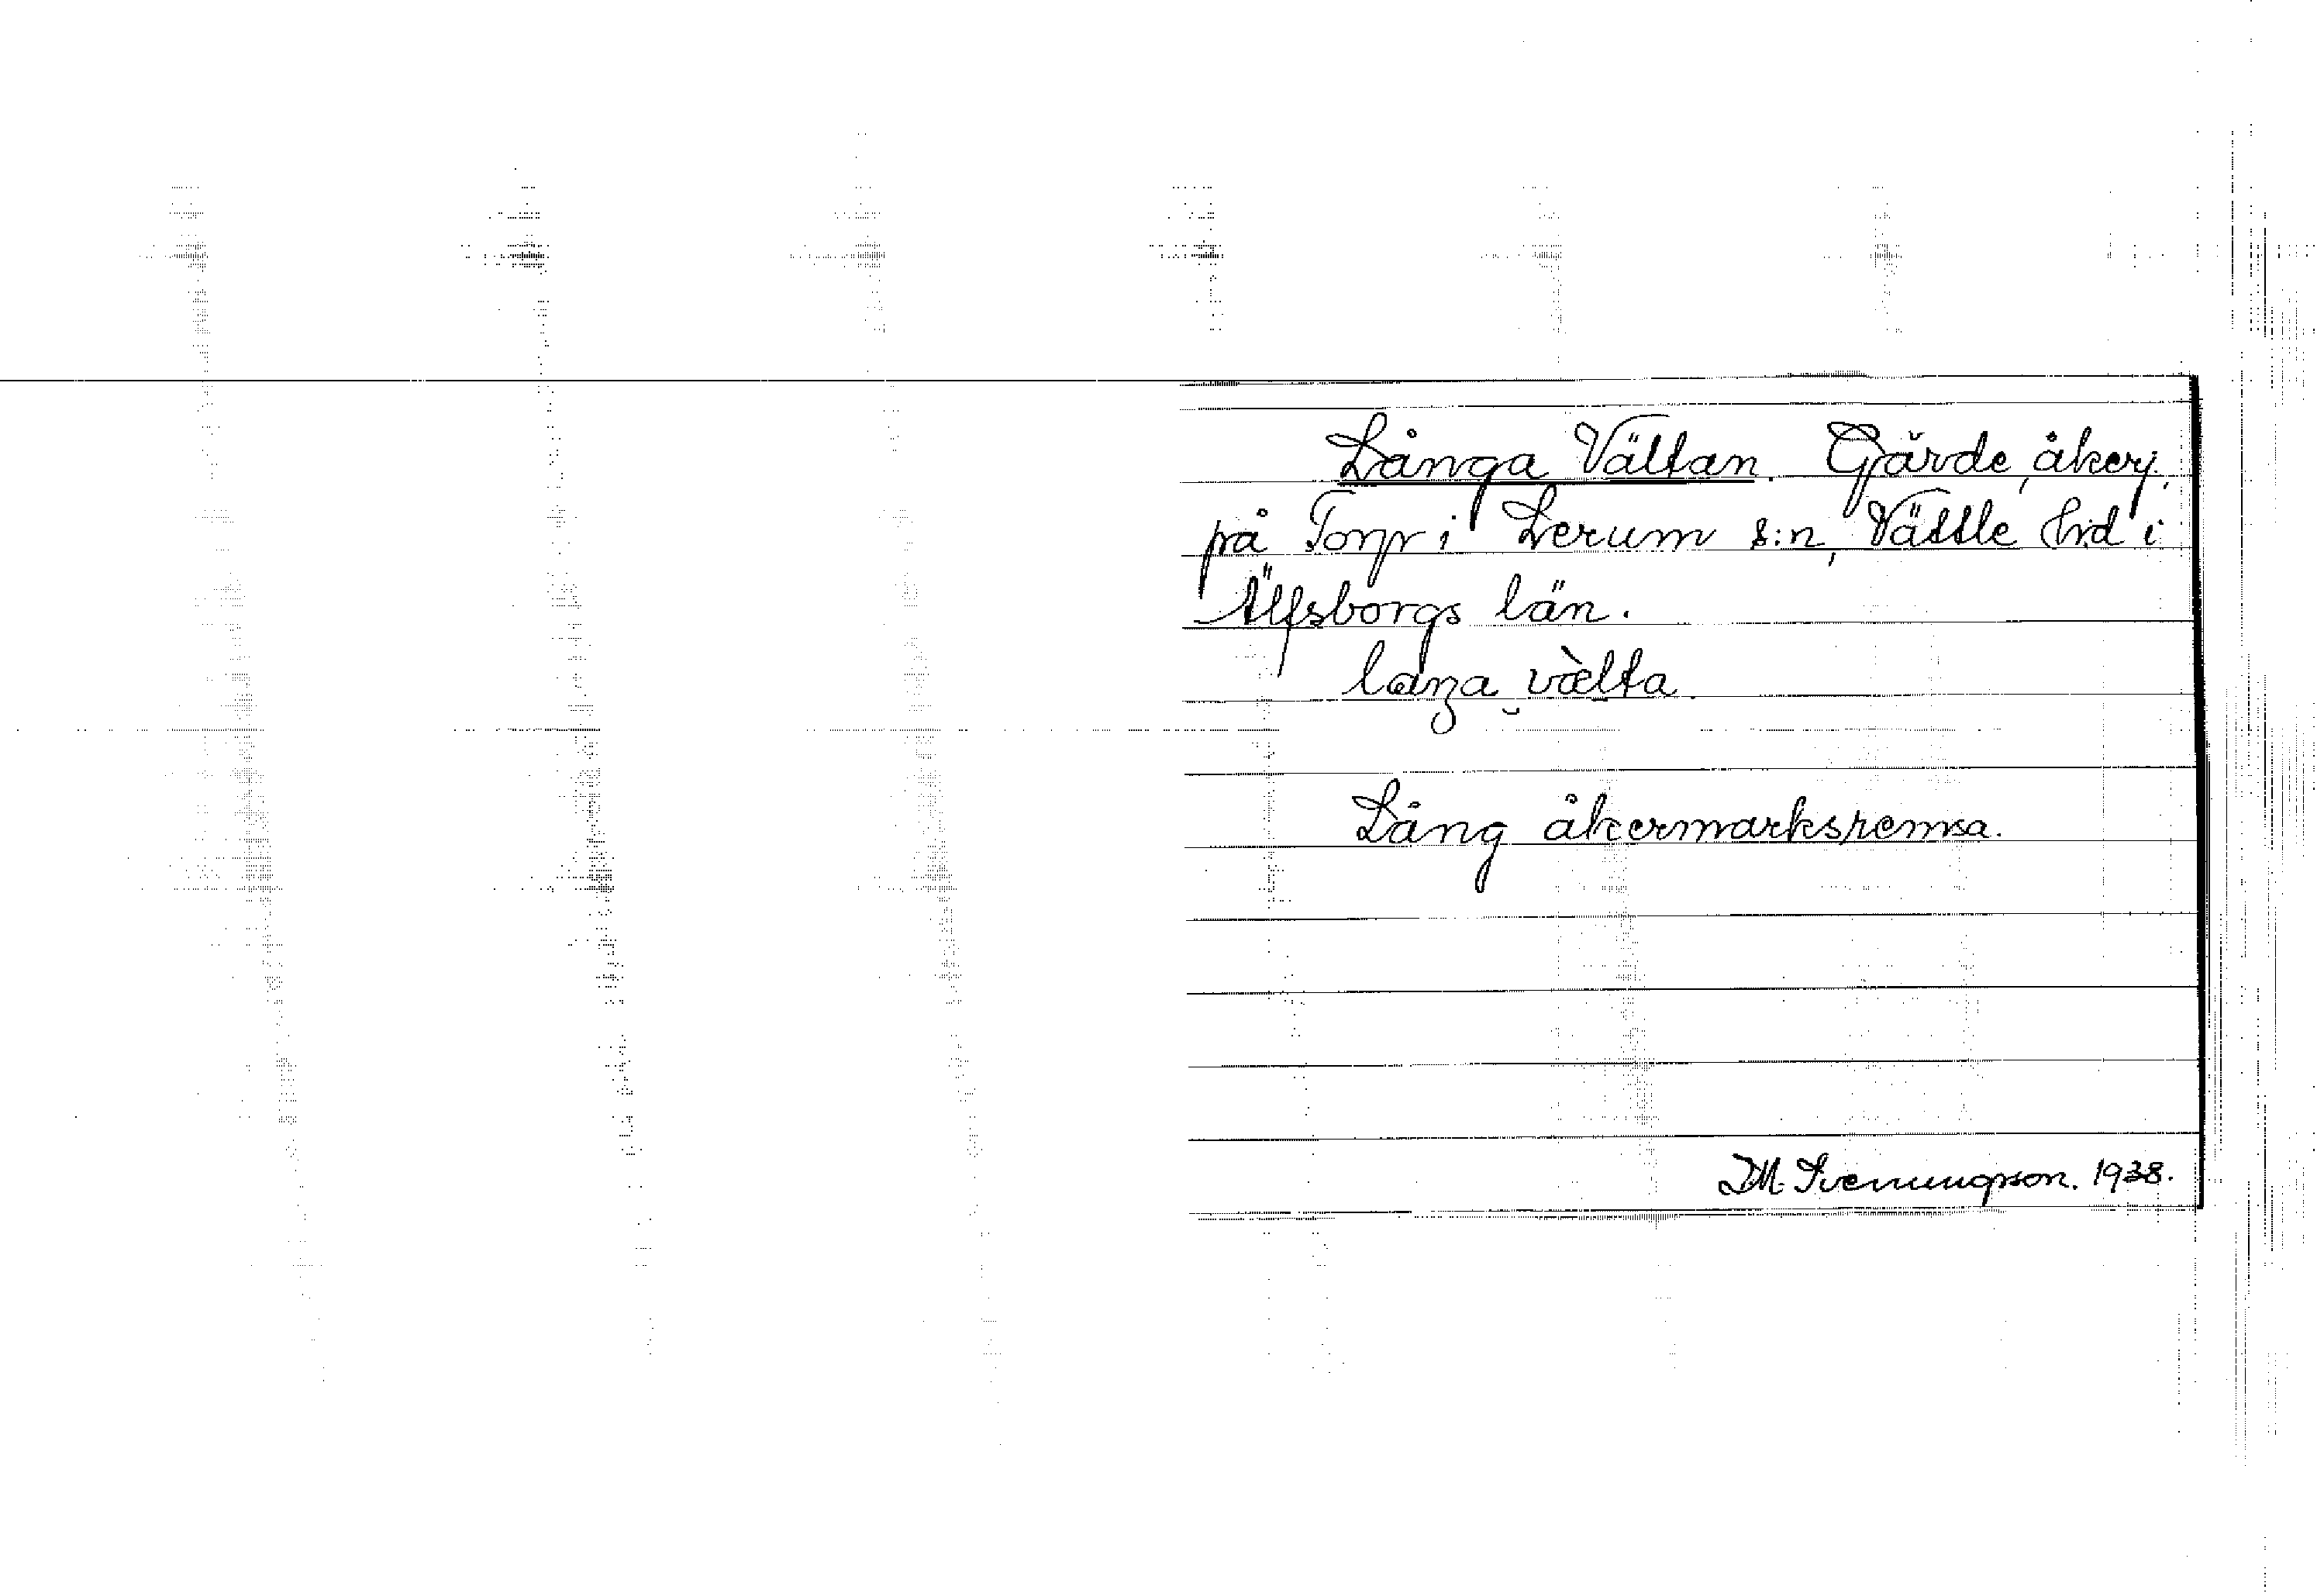 Långa Vältan. Gärde, åker,
på Torp i Lerum s:n, Vättle hd i
Älfsborgs län.
laŋa vælta.
Lång åkermarksremsa.
1938.